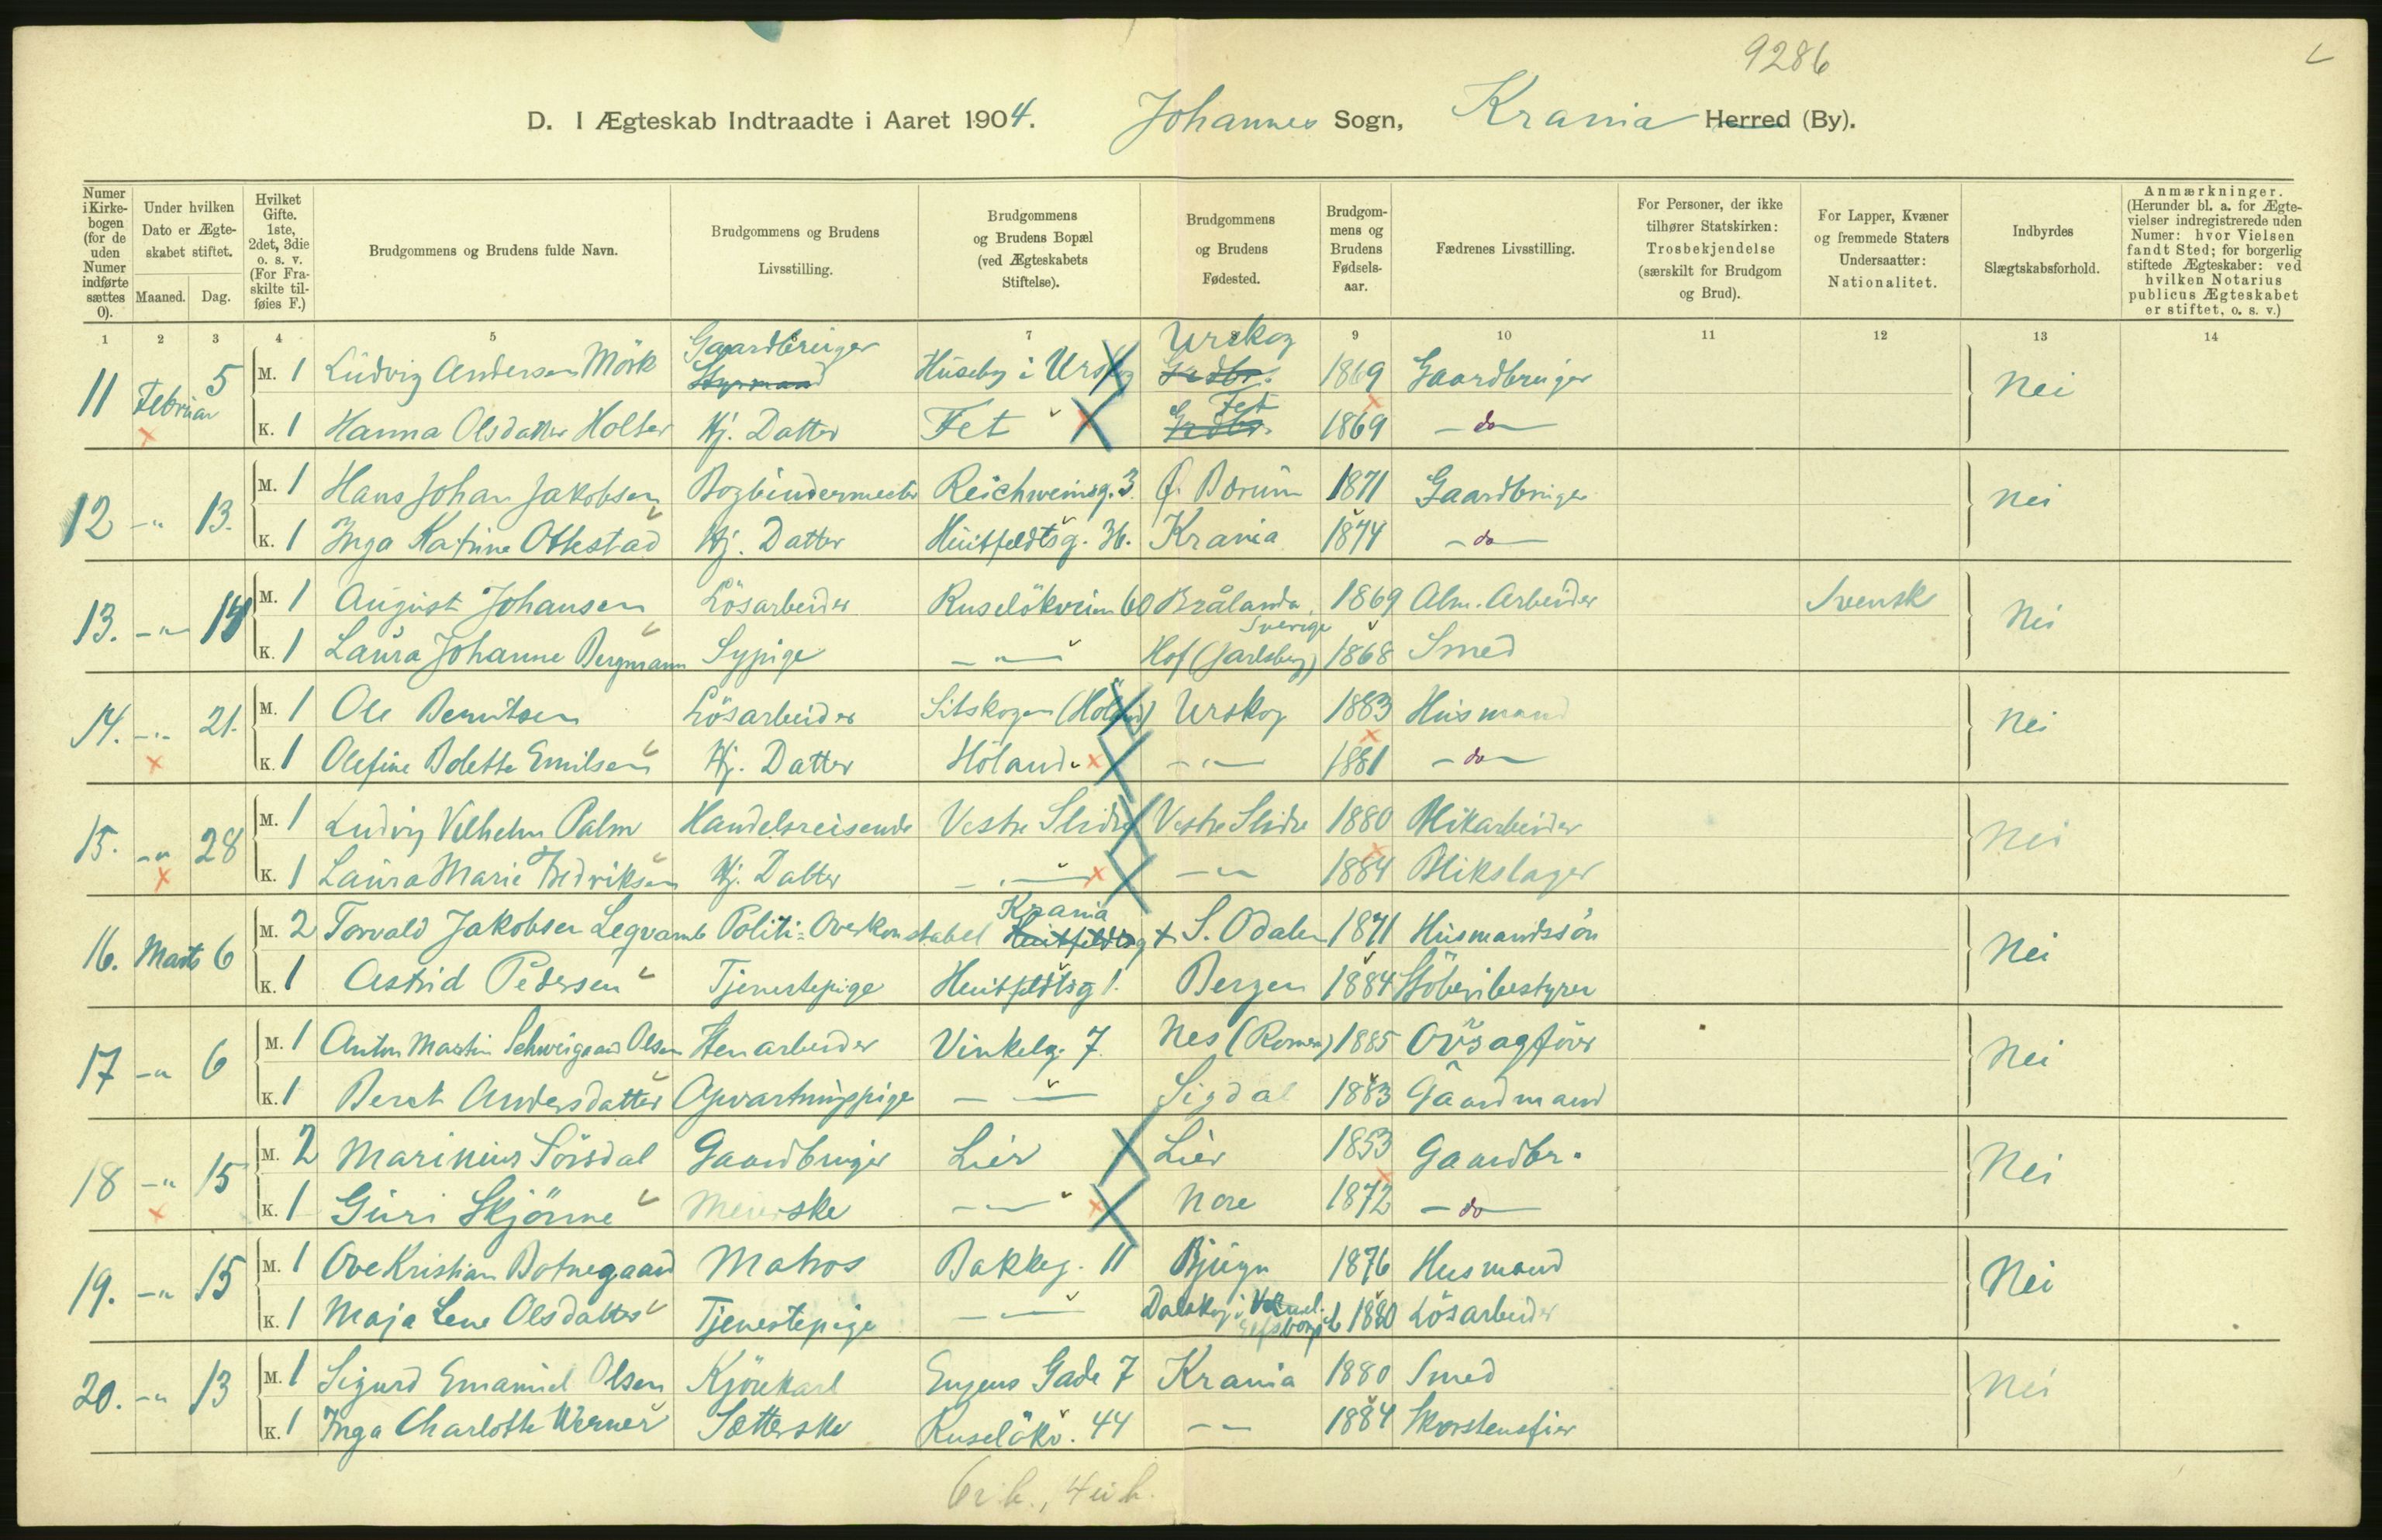 9286
D. I Ægteskab Indtraadte i Aaret 1904. Johannes Sogn, Krania Herred (By).
Numer i Kirkebogen (for de uden Numer indførte sættes 0). Under hvilken Dato er Ægteskabet stiftet. Maaned. Dag. Hvilket Gifte. 1ste, 2det, 3die o. s. v. (For Fraskilte tilføies F.) Brudgommens og Brudens fulde Navn. Brudgommens og Brudens Livsstilling. Brudgommens og Brudens Bopæl (ved Ægteskabets Stiftelse). Brudgommens og Brudens Fødested. Brudgommens og Brudens Fødselsaar. Fædrenes Livsstilling. For Personer, der ikke tilhører Statskirken: Trosbekjendelse (særskilt for Brudgom og Brud). For Lapper, Kvæner og fremmede Staters Undersaatter: Nationalitet. Indbyrdes Slægtskabsforhold. Anmærkninger. (Herunder bl. a. for Ægtevielser indregistrerede uden Numer: hvor Vielsen fandt Sted; for borgerlig stiftede Ægteskaber: ved hvilken Notarius publicus Ægteskabet er stiftet, o. s. v.)
1 2 3 4 5 7 9 10 11 12 13 14
11 Februar 5 M. 1 Ludvig Andersen Mörk Gaardbruger Styrmand Huseby i Urskog Urskog Grdbr. 1869 Gaardbruger Nei
K. 1 Hanna Olsdatter Holter Hj. Datter Fet Fet Grdbr. 1869 - do -
12 -"- 13. M. 1 Hans Johan Jakobsen Bogbindermester Reichweinsg. 3. Ø. Bærum 1871 Gaardbruger Nei
K. 1 Inga Katrine Ottestad Hj. Datter Huitfeldtsg. 36. Krania 1874 - do -
13. -"- 14 M. 1 August Johansen Lösarbeider Ruselökveien 60 Brålanda, Sverige 1869 Alm. Arbeider Svensk Nei
K. 1 Laura Johanne Bergmann Sypige -"- Hof (Jarlsberg) 1868 Smed
14. -"- 21. M. 1 Ole Berntsen Lösarbeider Sitskogen (Höland) Urskog 1883 Husmand Nei
K. 1 Olefine Bolette Emilsen Hj. Datter Höland -"- 1881 - do -
15. -"- 28 M. 1 Ludvig Vilhelm Palm Handelsreisende Vestre Slidre Vestre Slidre 1880 Blikarbeider Nei
K. 1 Laura Marie Fredriksen Hj. Datter -"- -"- 1884 Blikslager
16. Marts 6 M. 2 Torvald Jakobsen Legvamb Politi-Overkonstabel Krania Huitfeldtsg S. Odalen 1871 Husmandssön Nei
K. 1 Astrid Pedersen Tjenestepige Huitfeldtsg 1. Bergen 1884 Stöberibestyrer
17 -"- 6 M. 1 Anton Martin Schweigaard Olsen Stenarbeider Vinkelg. 7. Nes (Romer.) 1885 Ovrsagförer Nei
K. 1 Berit Andersdatter Opvartningspige -"- Sigdal 1883 Gaardmand
18 -"- 15 M. 2 Marinius Sörsdal Gaardbruger Lier Lier 1853 Gaardbr. Nei
K. 1 Guri Skjönne Meierske -"- Nore 1872 - do -
19. -"- 15 M. 1 Ove Kristian Botnegaard Matros Bakkeg. 11 Bjugn 1876 Husmand Nei
K. 1 Maja Lene Olsdatter Tjenestepige -"- Dalskog i Elfsborg 1880 Lösarbeider
20. -"- 13 M. 1 Sigurd Emanuel Olsen Kjörekarl Eugens Gade 7 Krania 1880 Smed Nei
K. 1 Inga Charlotte Werner Sætterske Ruselökv. 44 -"- 1884 Skorstensfeier